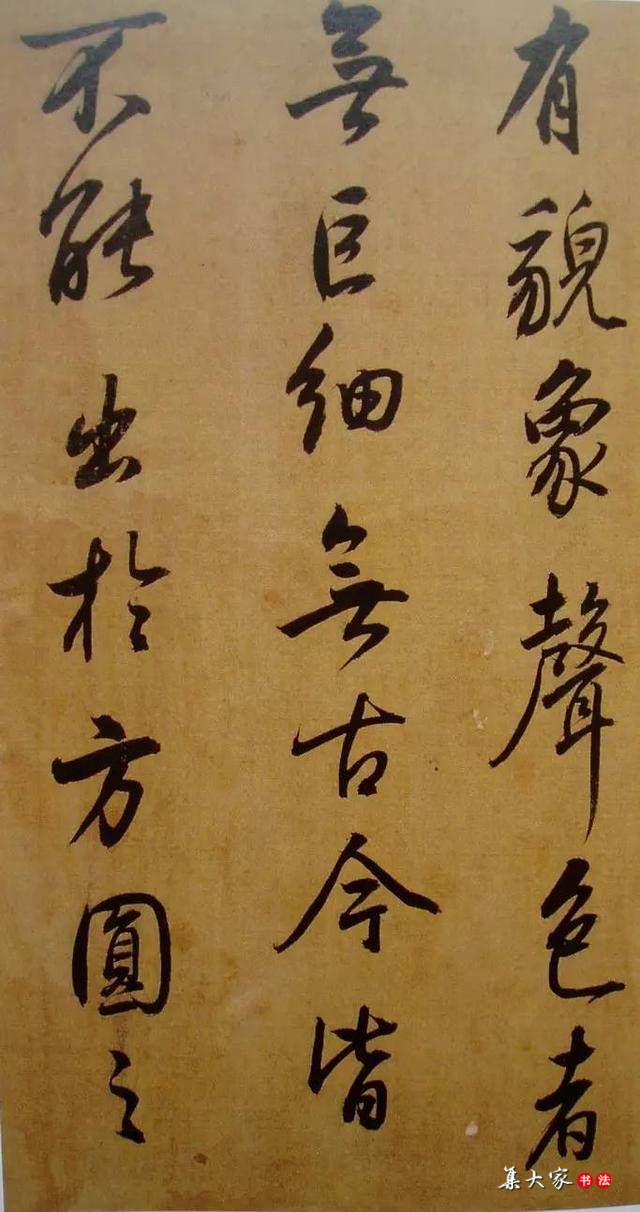 有貌象聲色者
無巨細無古今皆
不能出於方圓之
集大家书法